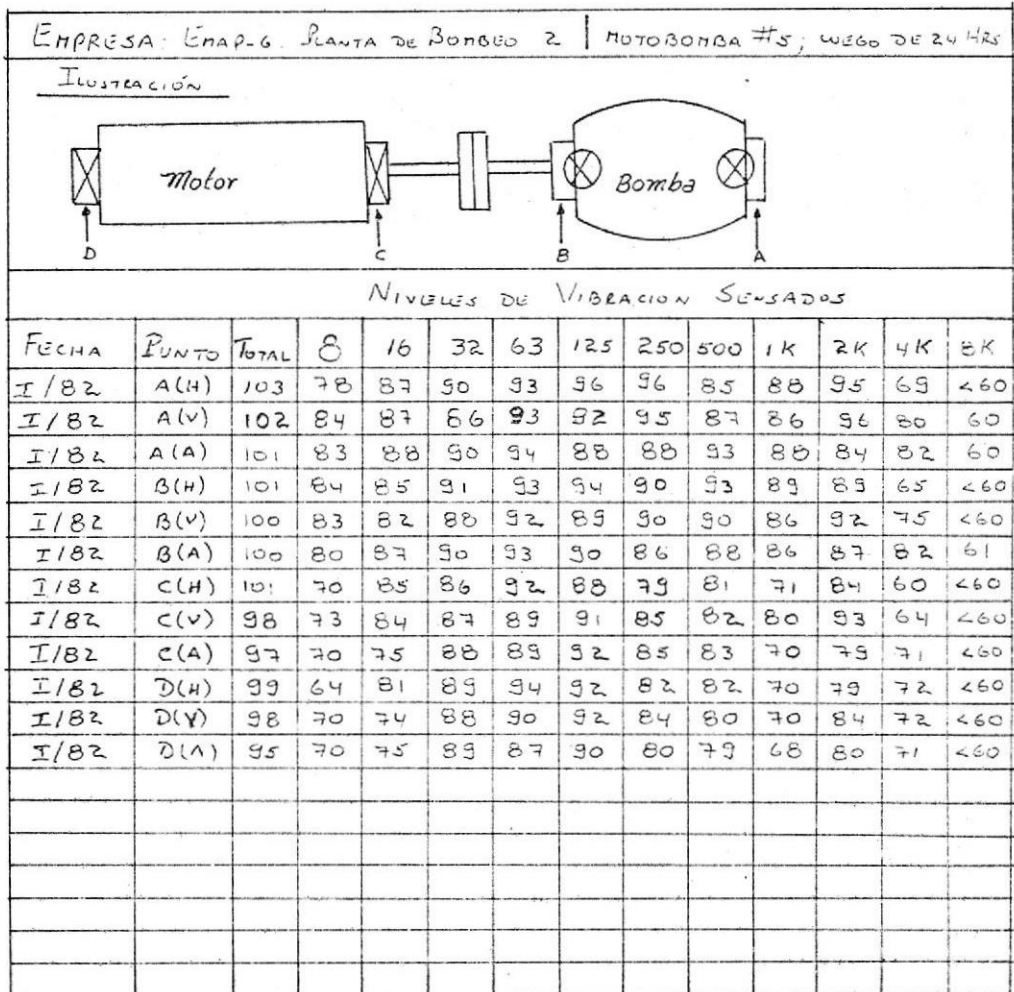 EMPRESA: EMAP-G. PLANTA DE BOMBEO 2 | MOTOBOMBA #5; LUEGO DE 24 HRS
ILUSTRACIÓN
Motor Bomba
D C B A
NIVELES DE VIBRACION SENSADOS
FECHA PUNTO TOTAL 8 16 32 63 125 250 500 1K 2K 4K 8K
I/82 A(H) 103 78 87 90 93 96 96 85 88 95 69 <60
I/82 A(V) 102 84 87 86 93 92 95 87 86 96 80 60
I/82 A(A) 101 83 88 90 94 88 88 93 88 84 82 60
I/82 B(H) 101 84 85 91 93 94 90 93 89 89 65 <60
I/82 B(V) 100 83 82 88 92 89 90 90 86 92 75 <60
I/82 B(A) 100 80 87 90 93 90 86 88 86 87 82 61
I/82 C(H) 101 70 85 86 92 88 79 81 71 84 60 <60
I/82 C(V) 98 73 84 87 89 91 85 82 80 93 64 <60
I/82 C(A) 97 70 75 88 89 92 85 83 70 79 71 <60
I/82 D(H) 99 64 81 89 94 92 82 82 70 79 72 <60
I/82 D(V) 98 70 74 88 90 92 84 80 70 84 72 <60
I/82 D(A) 95 70 75 89 87 90 80 79 68 80 71 <60